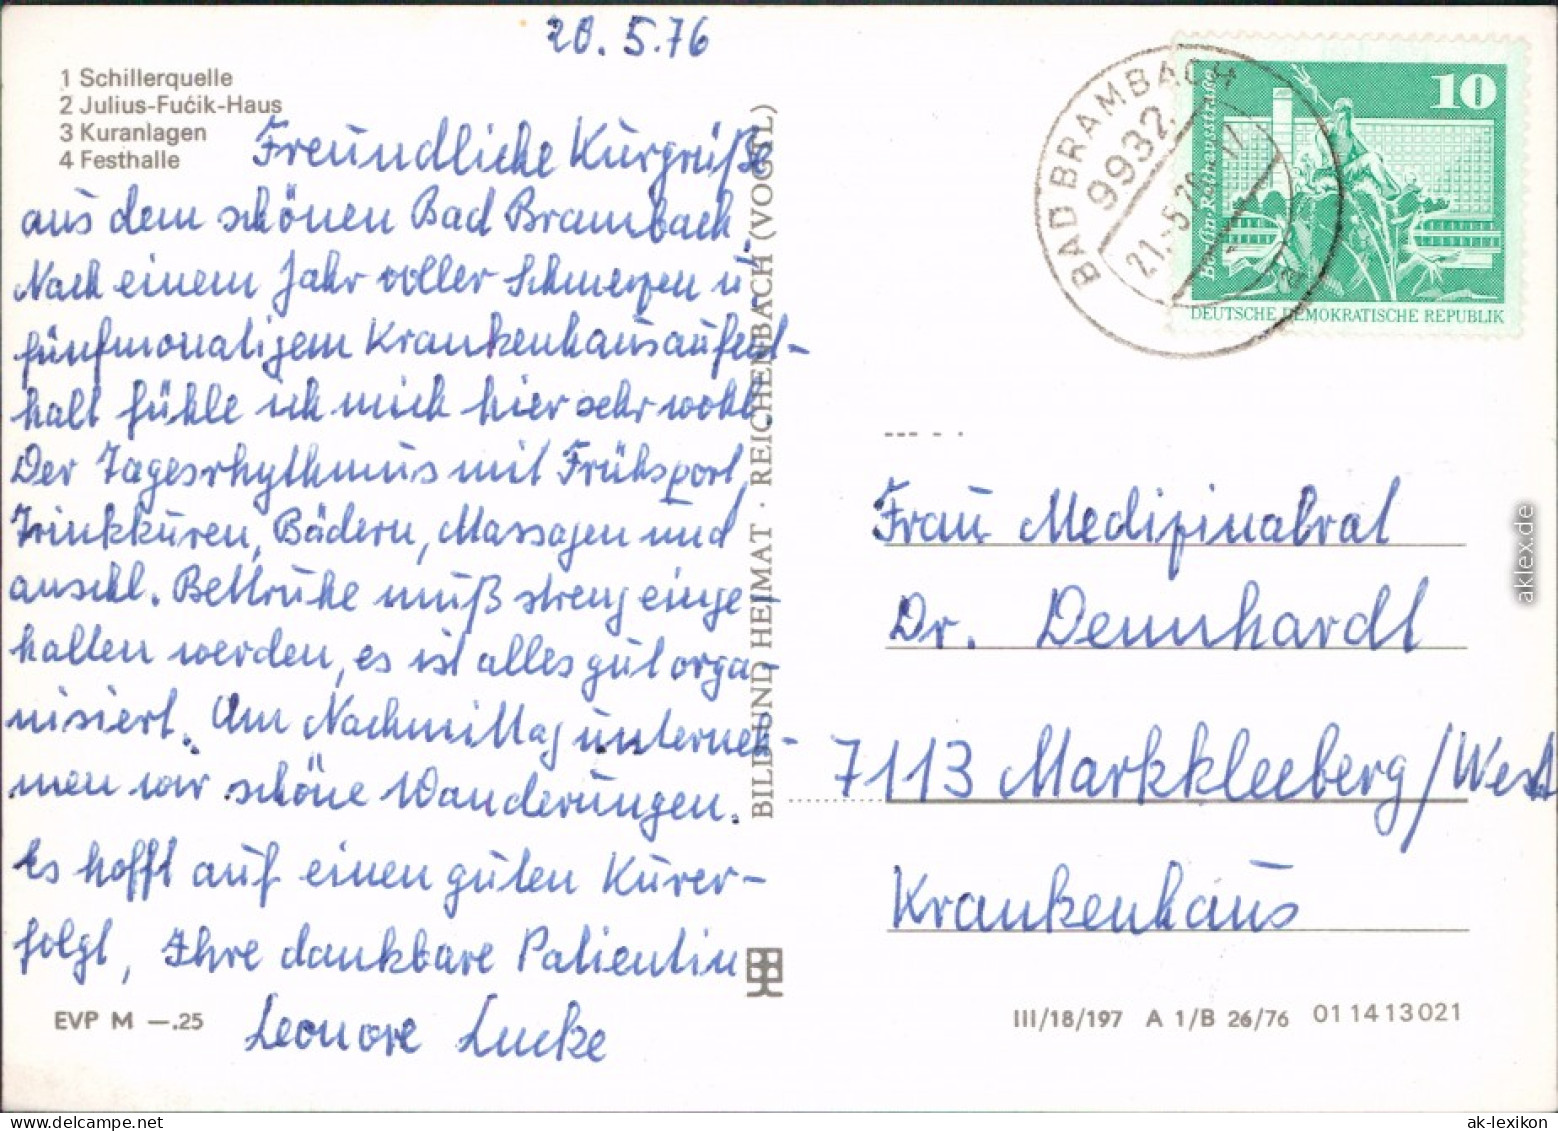 20.5.76
1 Schillerquelle
2 Julius-Fućik-Haus
3 Kuranlagen
4 Festhalle
Freundliche Kurgrüße
aus dem schönen Bad Brambach.
Nach einem Jahr voller Schmerzen u.
fünfmonatigem Krankenhausaufent-
halt fühle ich mich hier sehr wohl.
Der Tagesrhythmus mit Frühsport,
Trinkkuren, Bädern, Massagen und
anschl. Bettruhe muß streng einge-
halten werden, es ist alles gut orga-
nisiert. Am Nachmittag unterneh-
men wir schöne Wanderungen.
Es hofft auf einen guten Kurer-
folgt, Ihre dankbare Patientin
Leonore Lucke
EVP M —.25
BILD UND HEIMAT · REICHENBACH (VOGTL)
BAD BRAMBACH
9932
21.-5.76-17
10
Berlin-Rathausstraße
DEUTSCHE DEMOKRATISCHE REPUBLIK
Frau Medizinalrat
Dr. Dennhardt
7113 Markkleeberg/West
Krankenhaus
III/18/197 A 1/B 26/76 01 14 13 021
aklex.de
ak-lexikon